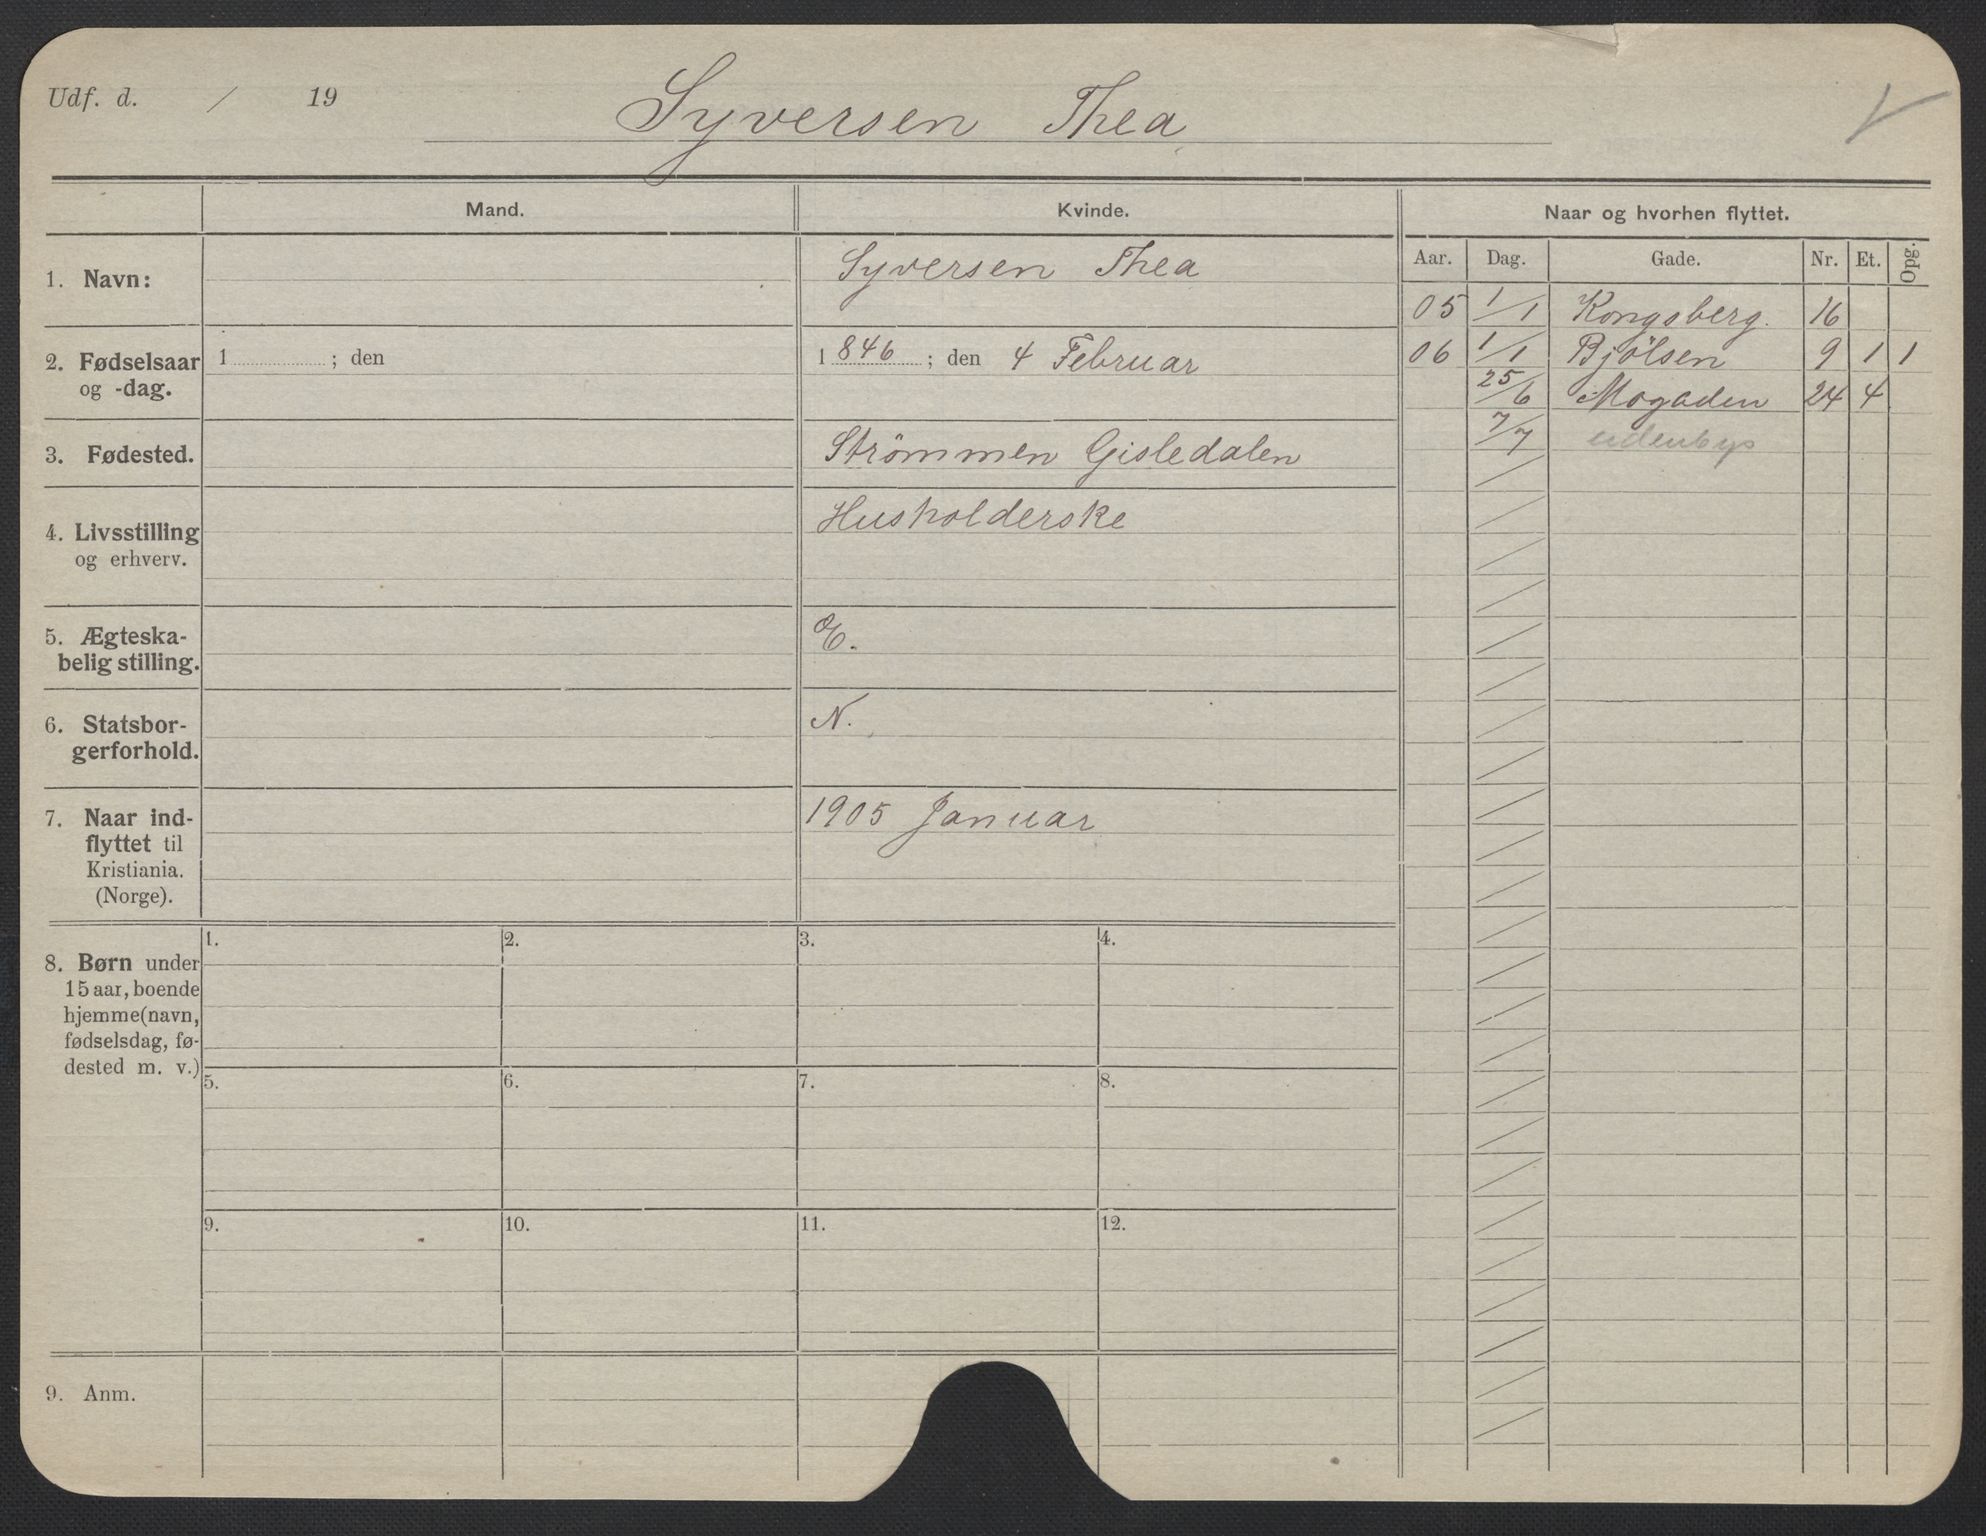 Udf. d. / 19
Syversen Thea
Mand.
Kvinde.
Naar og hvorhen flyttet.
Aar. Dag. Gade. Nr. Et. Opg.
1. Navn:
Syversen Thea
05 1/1 Kongsberg. 16
2. Fødselsaar
og -dag.
1 ; den
1846 ; den 4 Februar
06 1/1 Bjölsen 9 1 1
25/6 Mogaden 24 4
7/7 udenbys
3. Fødested.
Strömmen Gisledalen
4. Livsstilling
og erhverv.
Husholderske
5. Ægteska-
belig stilling.
E.
6. Statsbor-
gerforhold.
N.
7. Naar ind-
flyttet til
Kristiania.
(Norge).
1905 Januar
8. Børn under
15 aar, boende
hjemme (navn,
fødselsdag, fø-
dested m. v.)
1. 2. 3. 4.
5. 6. 7. 8.
9. 10. 11. 12.
9. Anm.